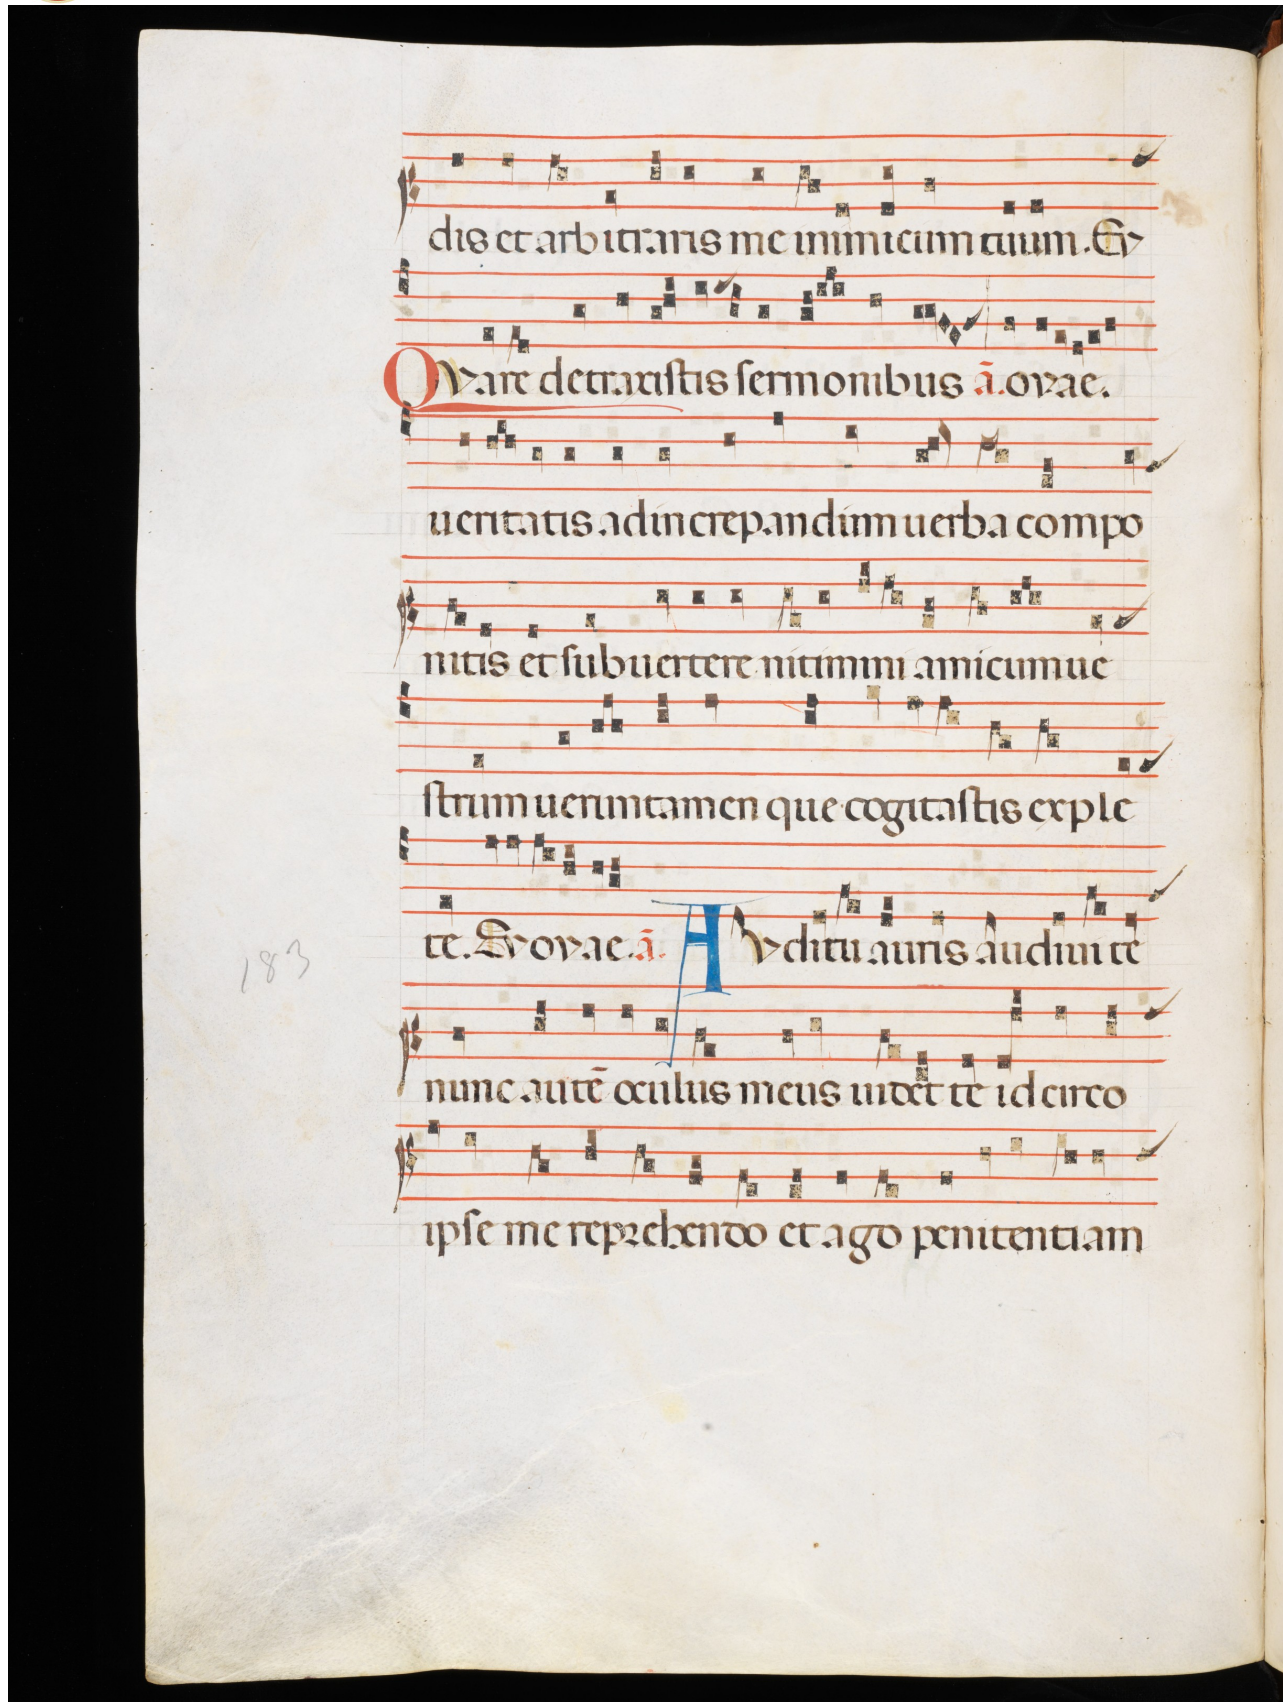 dis et arbitraris me inimicum tuum. Ev
Quare detraxistis sermonibus ā. ovae.
ueritatis ad increpandum uerba compo
nitis et subuertere nitimini amicum ue
strum ueruntamen que cogitastis exple
te. Evovae. ā. Auditu auris audiui te
183
nunc autē oculus meus uidet te idcirco
ipse me reprehendo et ago penitentiam